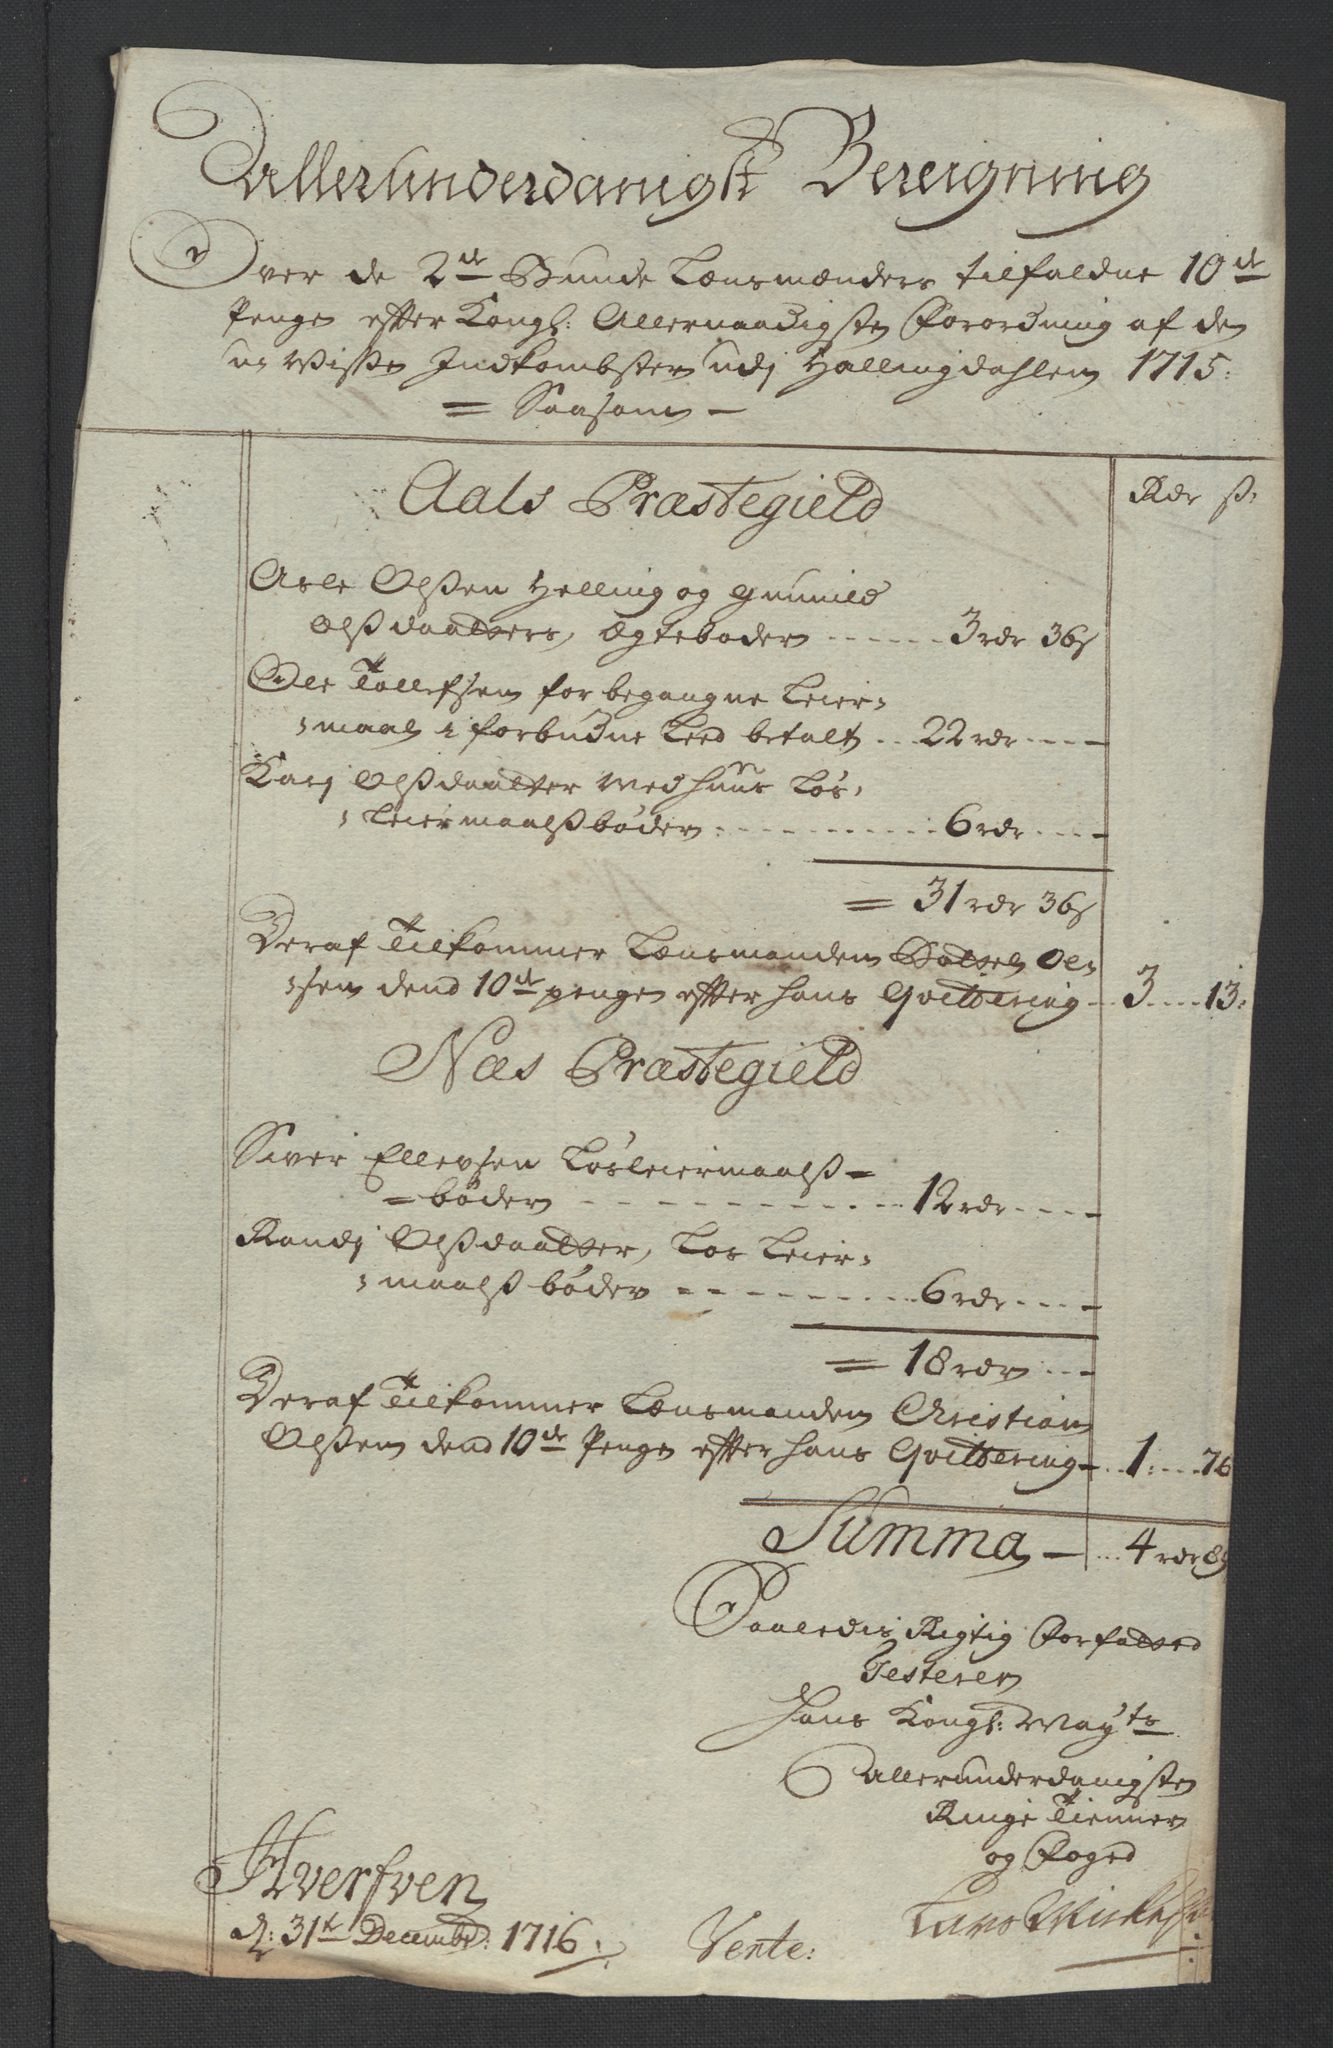 Allerunderdanigst Beregning
Over de 2de Bunde Lensmænders tilfaldne 10de
Penge efter Kongl: Allernaadigste Forordning af den
u-wisse Indkombster udj Hallingdahlen 1715:
= Saasom -
Aals Præstegield
Rdr ß:
Asle Olßen Helling og Gunnild
Olßdaatters, Egtebøder ------ 3 rdr 36ß
Ole Tollefsen for begangne Leier-
-maal i forbudne Leed betalt .. 22 rdr ----
Karj Olßdaatter Med huus Løs-
-Leiermaalßbøder ----------- 6 rdr ----
= 31 rdr 36ß
Deraf Tilkommer Lensmanden Ol-
-sen dend 10de penge efter hans Qvittering -- 3 ---- 13:
Næs Præstegield
Siver Ellevsen Løsleiermaalß=
=bøder ----------- 12 rdr ----
Randj Olßdaatter, Løs Leier-
-maalß bøder --------- 6 rdr ----
= 18 rdr ---
Deraf Tilkommer Lensmanden Christian
Olßen dend 10de Penge efter hans Qvittering --- 1: --- 76
Summa - ... 4 rdr 89
Saaledis Rigtig Forfatted
Testerer
Hans Kongl: Mayts
Allerunderdanigste
Ringe Tienner
og Foged
Hverfven
d: 31te Decembr: 1716:
Vente: